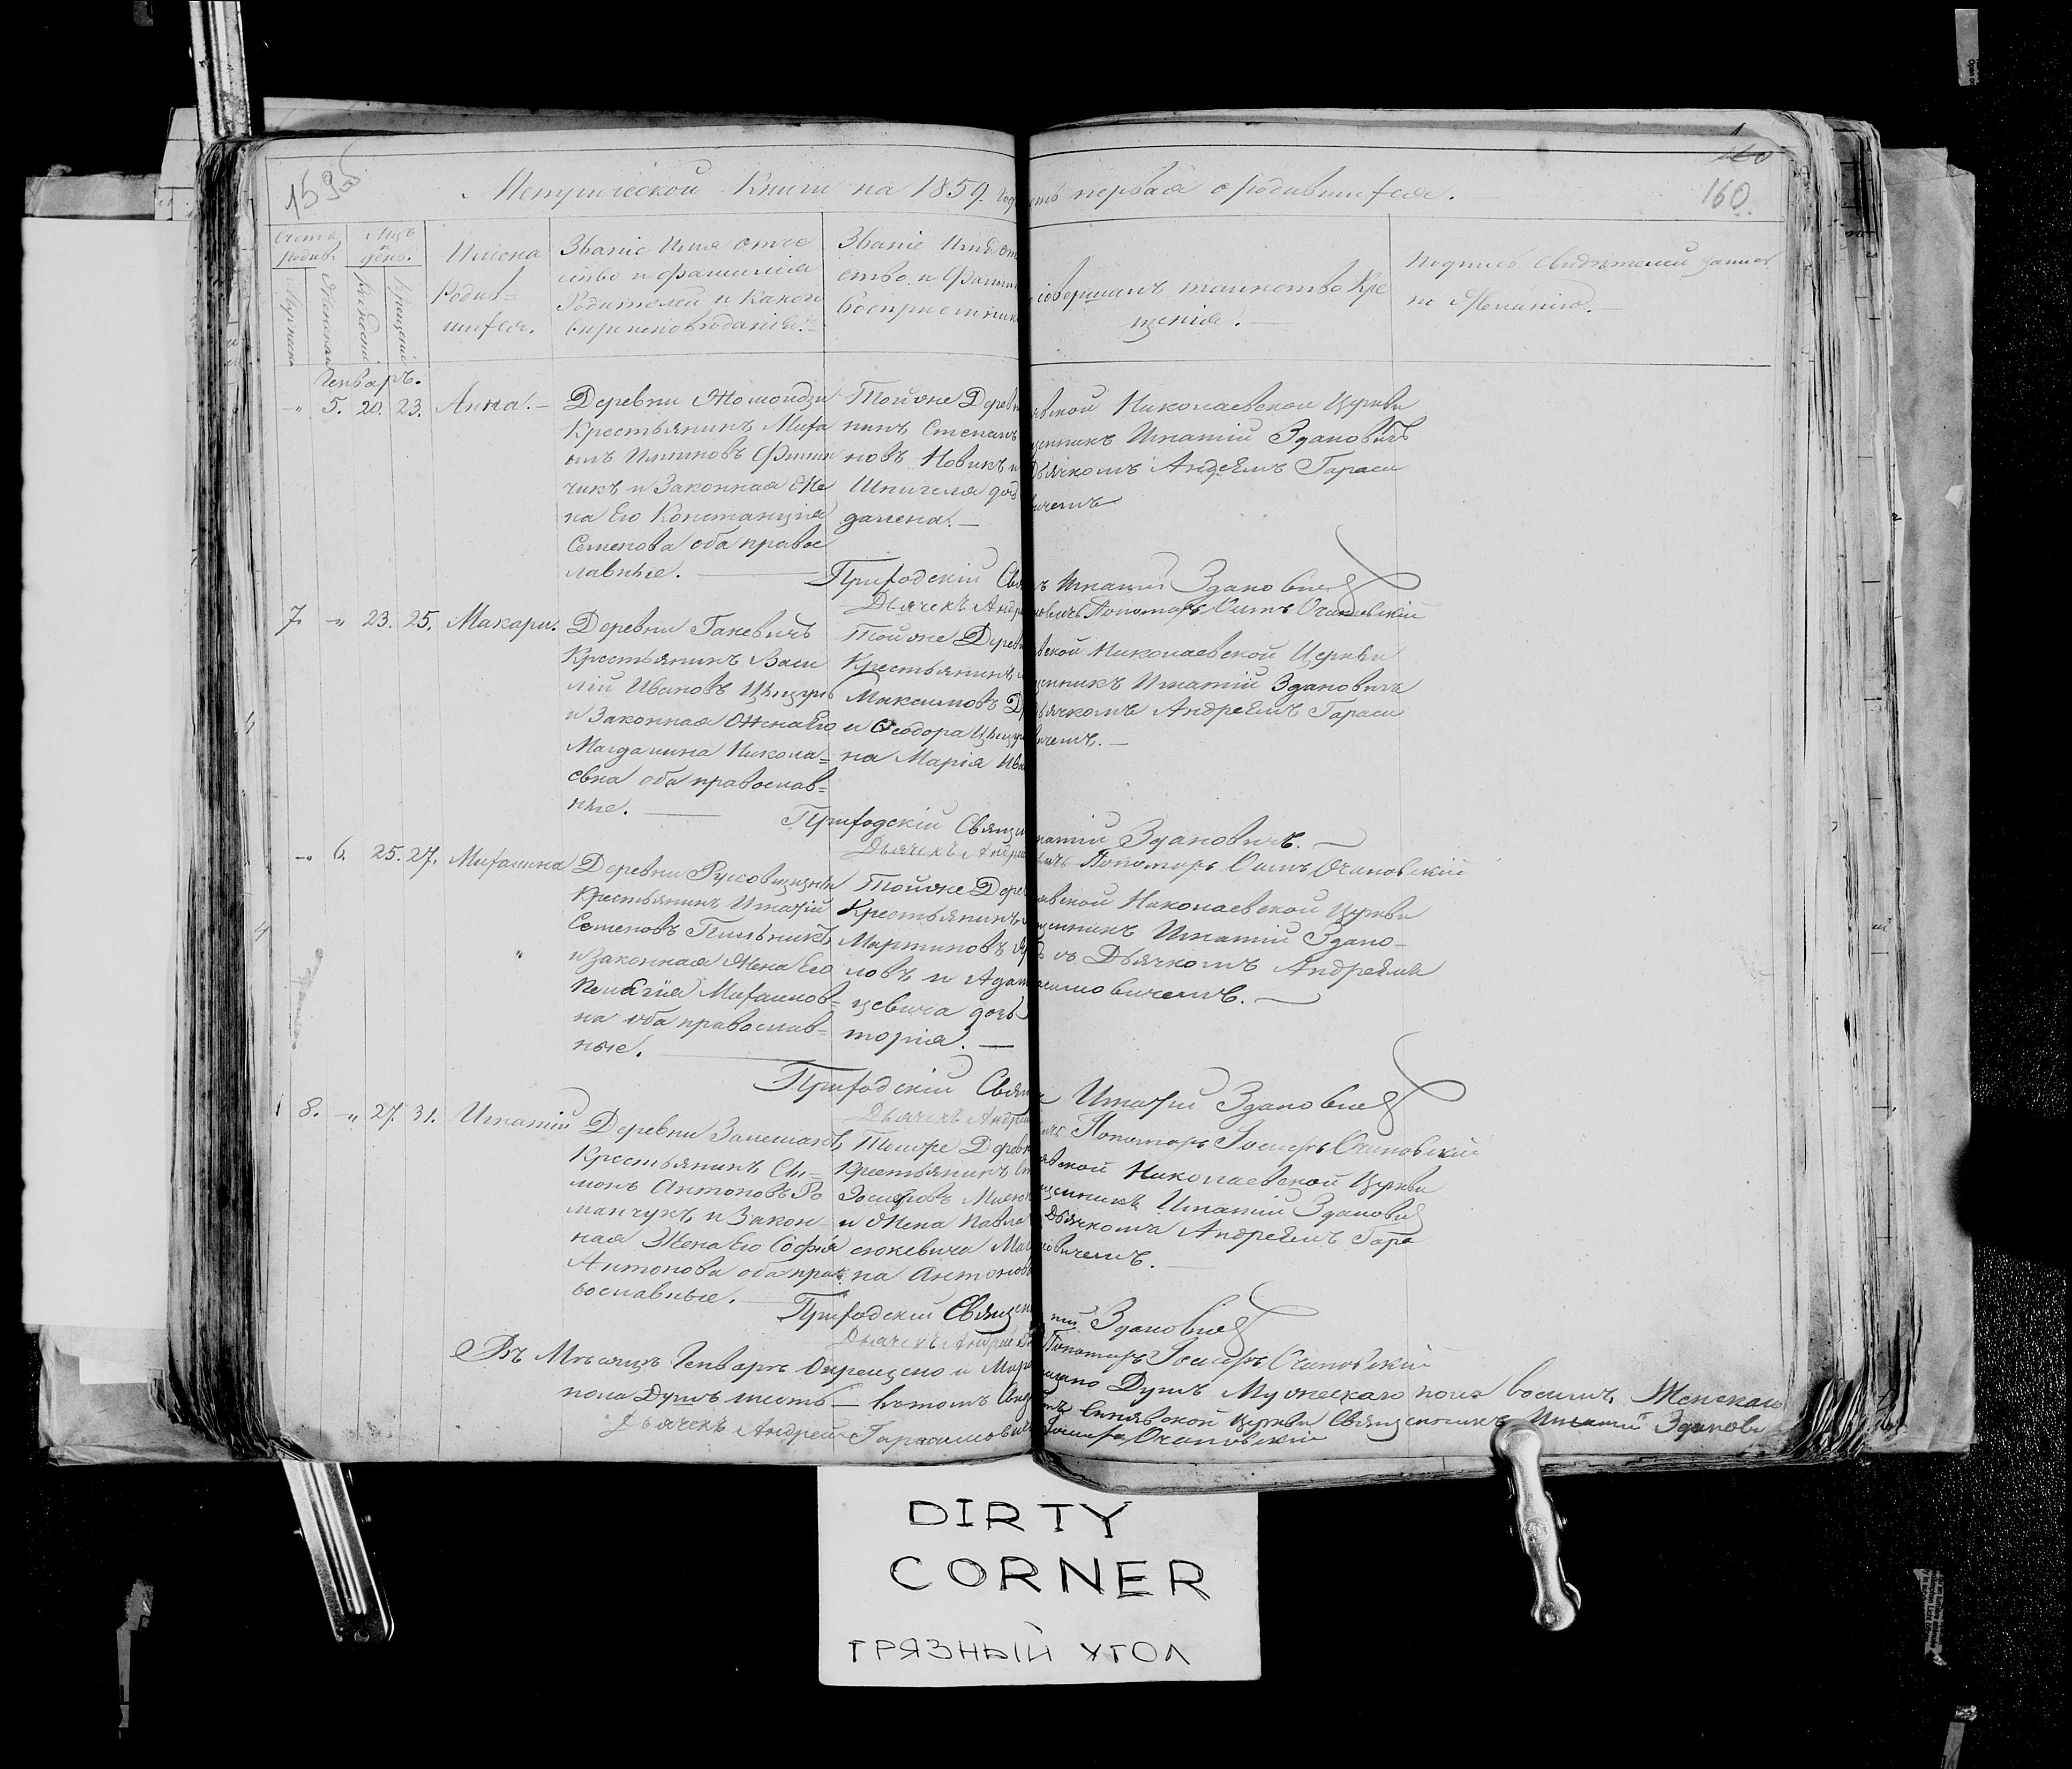 159об
160
160
Метрической Книги на 1859. год
первая о родившихся.
Счетъ родив.
Мужеска
Женска
Мцъ и день.
Рождения
Крещения
Имена
Родив=
шихся.
Званіе Имя отче
ство и фамилія
Родителей и какого
вѣроисповѣданія.
Званіе Имя от
ство и Фамил
воспріемник
совершалъ таинство Кре
щенія.
Подпись свидѣтелей записи
по желанію.
Генварь.
" 5. 20. 23. Анна.
Деревни
Крестьянинъ Миха
илъ
чикъ и Законная Же
на Его Констанція
Семенова оба правос
лавные.
Тойже Дерев
нинъ Степанъ
новъ Новикъ и
Шпигеля доч
далена.
вской Николаевской Церкви
щенникъ Игнатій Здановичъ
Дьячкомъ Андреемъ Гараси
вичемъ
Приходскій Свя
ъ Игнатій Здановичъ
Дьячекъ Андре
Пономарь
7. " 23. 25. Макари.
Деревни Ганевичъ
Крестьянинъ Васи
лій Ивановъ
и Законная Жена Его
Магдалина Никола=
евна оба православ=
ные.
Тойже Дерев
Крестьянинъ
Максимовъ
и Феодора
на Марія Ива
вской Николаевской Церкви
щенникъ Игнатій Здановичъ
Дьячкомъ Андреемъ Гараси
вичемъ.
Приходскій Священ
натій Здановичъ.
Дьячекъ Андре
Пономарь
" 6. 25. 27. Михалина
Деревни
Крестьянинъ Игнатій
Семеновъ Пильникъ
и Законная Жена Его
Пелагія Михайлов=
на оба православ=
ные.
Тойже Дере
Крестьянинъ
Мартиновъ
ловъ и Адам
цевича дочь
торія.
авской Николаевской Церкви
щенникъ Игнатій Здано-
съ Дьячкомъ Андреемъ
симовичемъ.
Приходскій Свящ
Игнатій Здановичъ
Дьячекъ Андре
Пономарь Іосифъ
8. " 27. 31. Игнатій
Деревни
Крестьянинъ Си=
монъ Антоновъ Ро
манчукъ и Закон-
ная Жена Его Софія
Антонова оба пра=
вославные.
Тойже Дерев
Крестьянинъ
Іосифовъ
и Жена Павла
сюкевича Ма
на Антонов
вской Николаевской Церкви
щенникъ Игнатій Здановичъ
Дьячкомъ Андреемъ Гара
мовичемъ.
Приходскій Священ
тій Здановичъ
Дьячекъ Андрей
Пономарь Іосифъ
Въ Мѣсяцѣ Генварѣ Окрещено и Миро
мазано Душъ Мужескаго пола восемь, Женскаго
пола Душъ шесть
Церкви Священникъ Игнатій Здановичъ
Дьячекъ Андрей Гарасимович
Іосифъ
DIRTY
CORNER
ГРЯЗНЫЙ УГОЛ